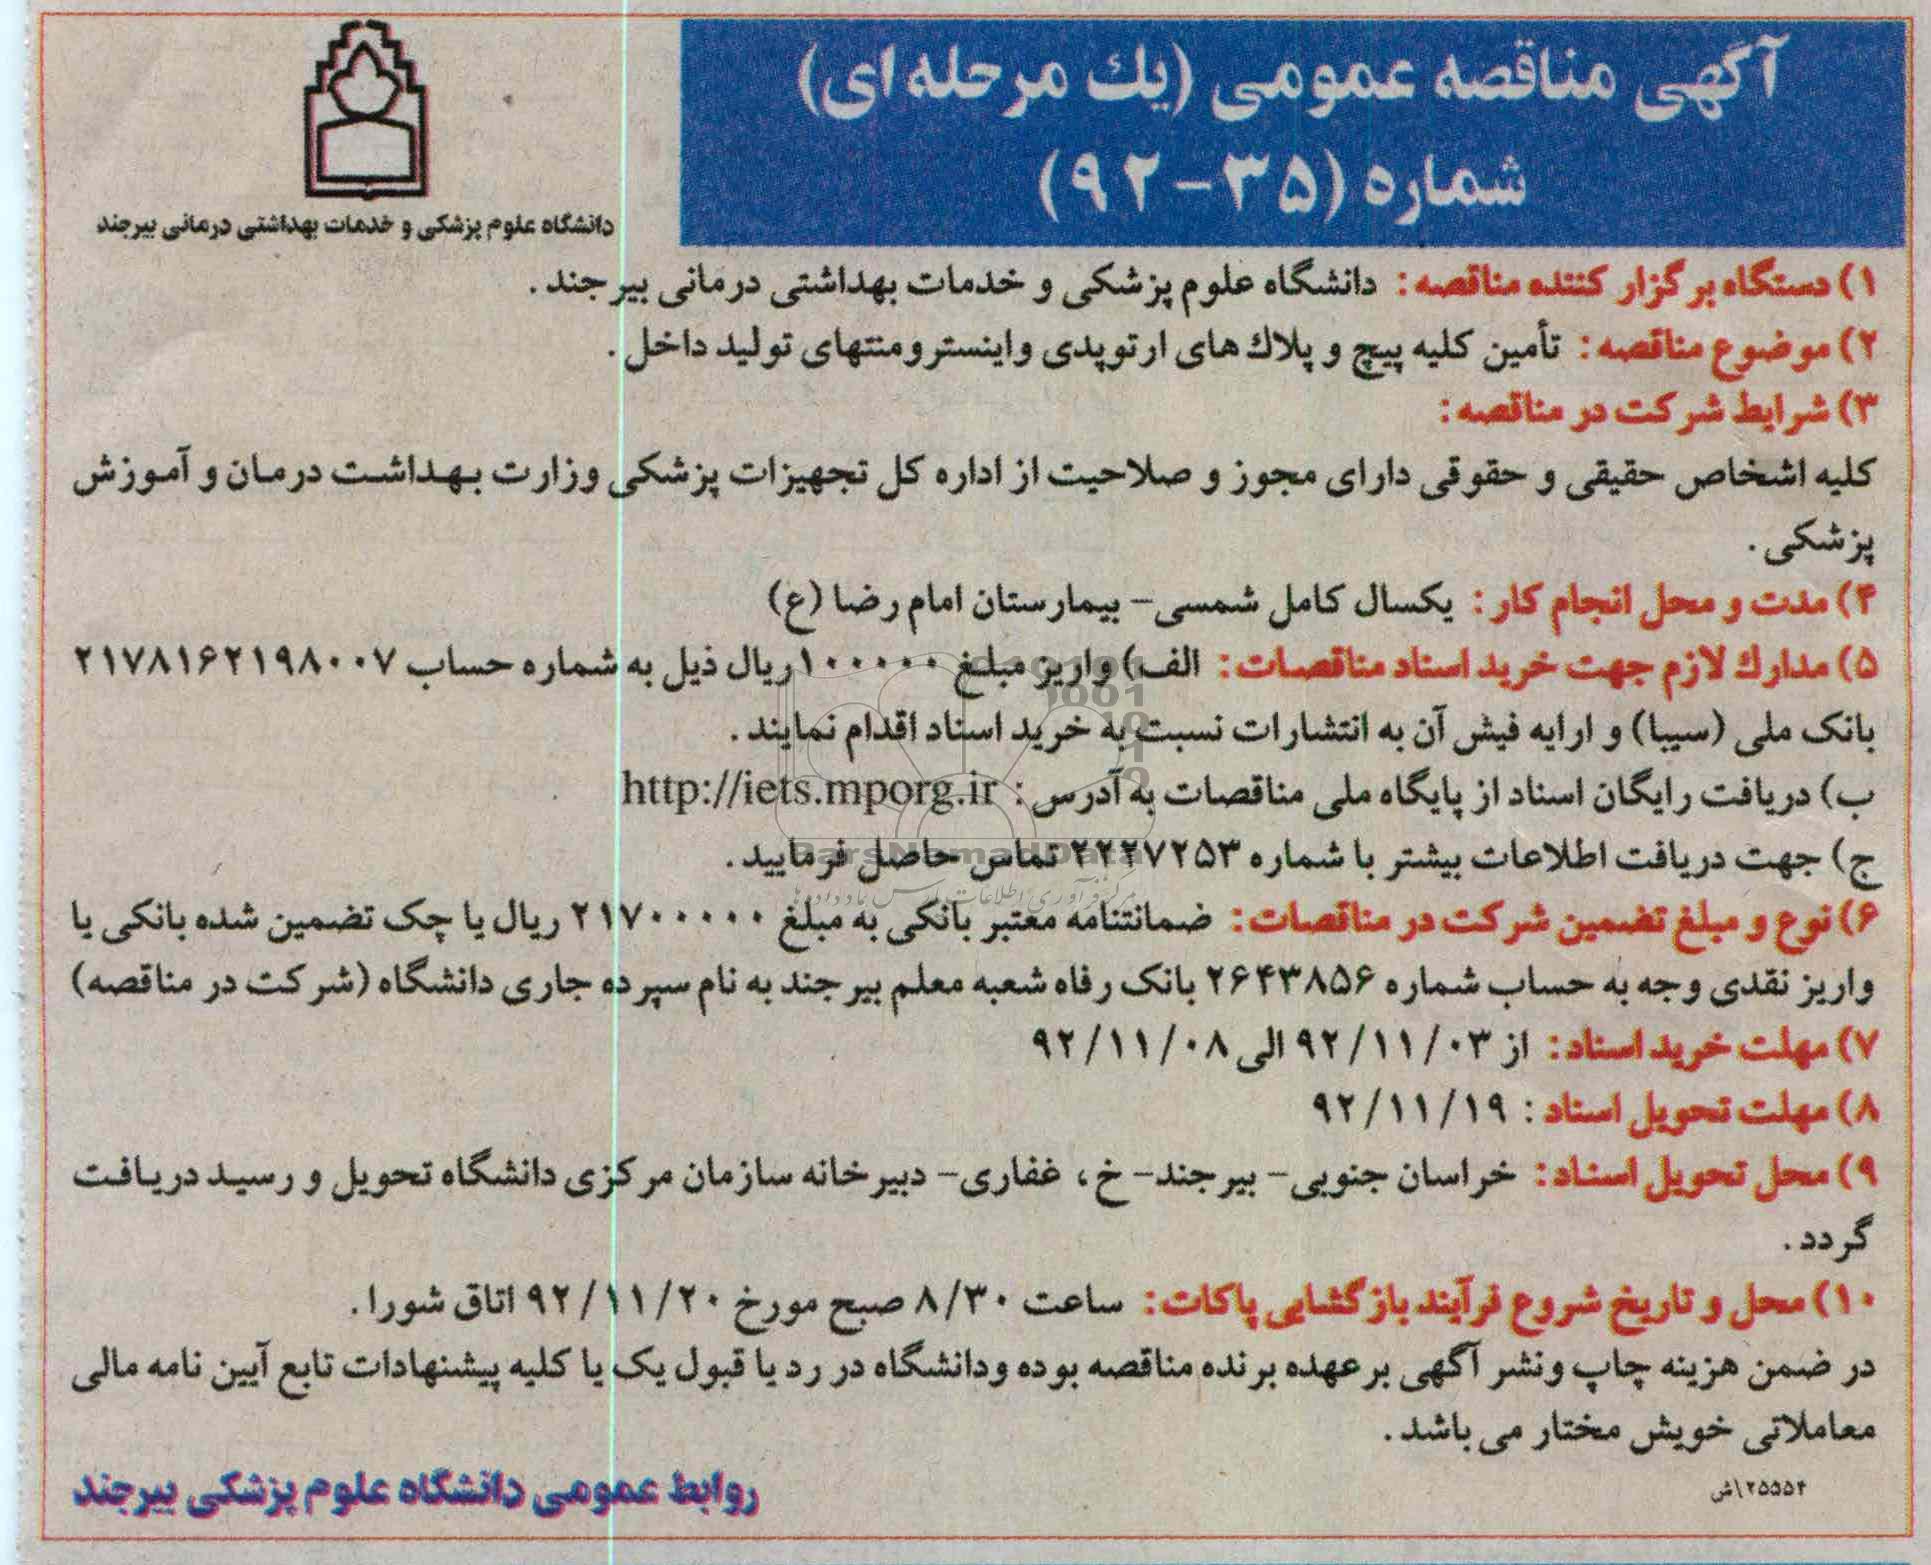 آگهی مناقصه عمومی (یك مرحله ای)
شماره (۳۵-۹۲)
دانشگاه علوم پزشکی و خدمات بهداشتی درمانی بیرجند
۱) دستگاه برگزار کننده مناقصه: دانشگاه علوم پزشکی و خدمات بهداشتی درمانی بیرجند.
۲) موضوع مناقصه: تأمین کلیه پیچ و پلاك های ارتوپدی واینسترومنتهای تولید داخل.
۳) شرایط شرکت در مناقصه:
کلیه اشخاص حقیقی و حقوقی دارای مجوز و صلاحیت از اداره کل تجهیزات پزشکی وزارت بهداشت درمان و آموزش
پزشکی.
۴) مدت و محل انجام کار: یکسال کامل شمسی- بیمارستان امام رضا (ع)
۵) مدارك لازم جهت خرید اسناد مناقصات: الف) واریز مبلغ ۱۰۰۰۰۰ریال ذیل به شماره حساب ۲۱۷۸۱۶۲۱۹۸۰۰۷
بانک ملی (سیبا) و ارایه فیش آن به انتشارات نسبت به خرید اسناد اقدام نمایند.
ب) دریافت رایگان اسناد از پایگاه ملی مناقصات به آدرس: http://iets.mporg.ir
ج) جهت دریافت اطلاعات بیشتر با شماره ۲۲۲۷۲۵۳ تماس حاصل فرمایید.
ParsNamadData
مرکز فرآوری اطلاعات پارس نماد داده ها
۶) نوع و مبلغ تضمین شرکت در مناقصات: ضمانتنامه معتبر بانکی به مبلغ ۲۱۷۰۰۰۰۰ ریال یا چک تضمین شده بانکی یا
واریز نقدی وجه به حساب شماره ۲۶۴۳۸۵۶ بانک رفاه شعبه معلم بیرجند به نام سپرده جاری دانشگاه (شرکت در مناقصه)
۷) مهلت خرید اسناد: از ۹۲/۱۱/۰۳ الی ۹۲/۱۱/۰۸
۸) مهلت تحویل اسناد: ۹۲/۱۱/۱۹
۹) محل تحویل اسناد: خراسان جنوبی- بیرجند- خ، غفاری- دبیرخانه سازمان مرکزی دانشگاه تحویل و رسید دریافت
گردد.
۱۰) محل و تاریخ شروع فرآیند بازگشایی پاکات: ساعت ۸/۳۰ صبح مورخ ۹۲/۱۱/۲۰ اتاق شورا.
در ضمن هزینه چاپ ونشر آگهی بر عهده برنده مناقصه بوده ودانشگاه در رد یا قبول یک یا کلیه پیشنهادات تابع آیین نامه مالی
معاملاتی خویش مختار می باشد.
۲۵۵۵۴\ش
روابط عمومی دانشگاه علوم پزشکی بیرجند